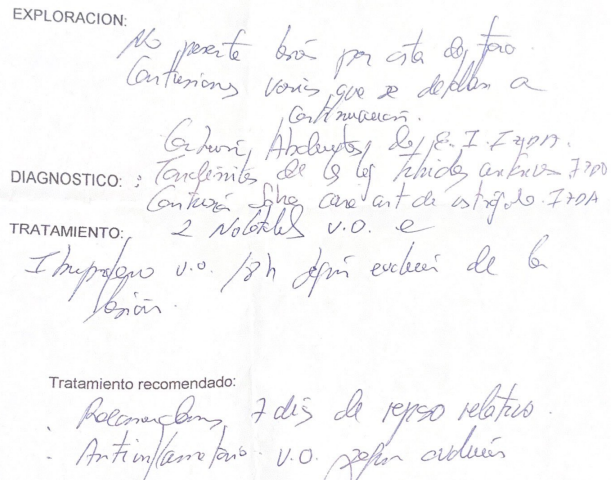 EXPLORACION:
No presenta lesión por asta de toro.
Contusiones varias que se detallan a
continuación.
Contusión
DIAGNOSTICO: : Tendinitis de la
Contusión cara ant de astrágalo. IZDA
TRATAMIENTO: 2 Nolotiles v.o. e
Ibuprofeno v.o. /8h según evolución de la
lesión.
Tratamiento recomendado:
. Recomendamos 7 días de reposo relativo.
. Antiinflamatorio v.o. según evolución